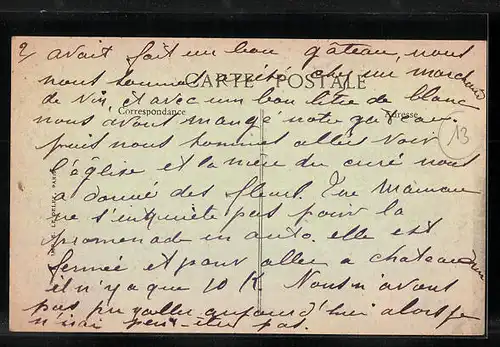 2/ avait fait un bon gâteau, nous
nous sommes arrêté chez un marchand
CARTE POSTALE
de vin, et avec un bon litre de blanc
Correspondance
Adresse
nous avons mangé notre gateau.
13
puis nous sommes allés voir
l'église et la mère du curé nous
a donné des fleurs. Que Maman
ne s'inquiète pas pour la
promenade en auto. elle est
fermée et pour aller a chateaudun
il n'y a que 10 K. Nous n'avons
pas pu y aller aujourd'hui alors je
n'irai peut-être pas.